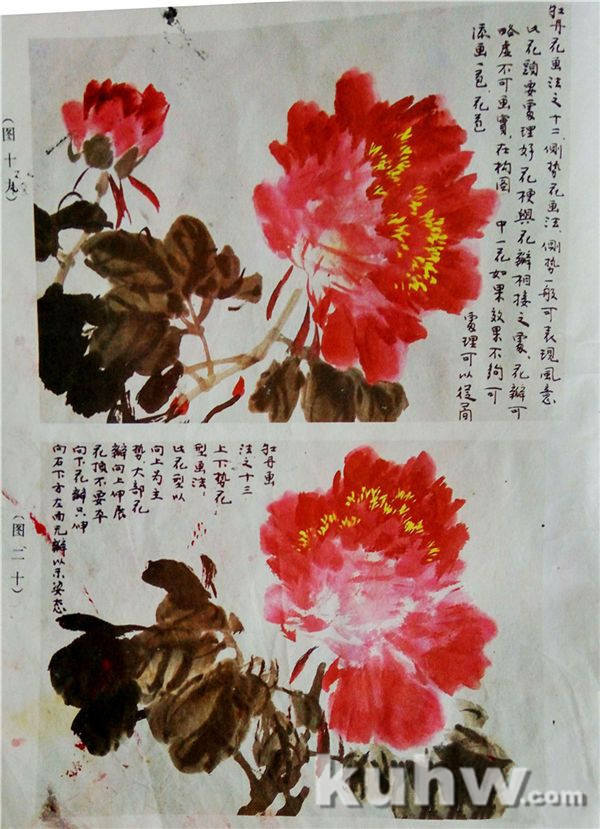 牡丹花画法之十二、侧势花画法、侧势一般可表现风意
以花头要处理好花梗与花瓣相接之处、花瓣可
略虚不可画实、在构图中一花如果效果不夠可
添画一色花苞
处理可以从简
(图十九)
牡丹画
法之十三
上下势花
型画法、
以花型以
向上为主
势大部花
瓣向上伸展
花
向下花瓣只伸
向右下方左
(图二十)
kuhw.com